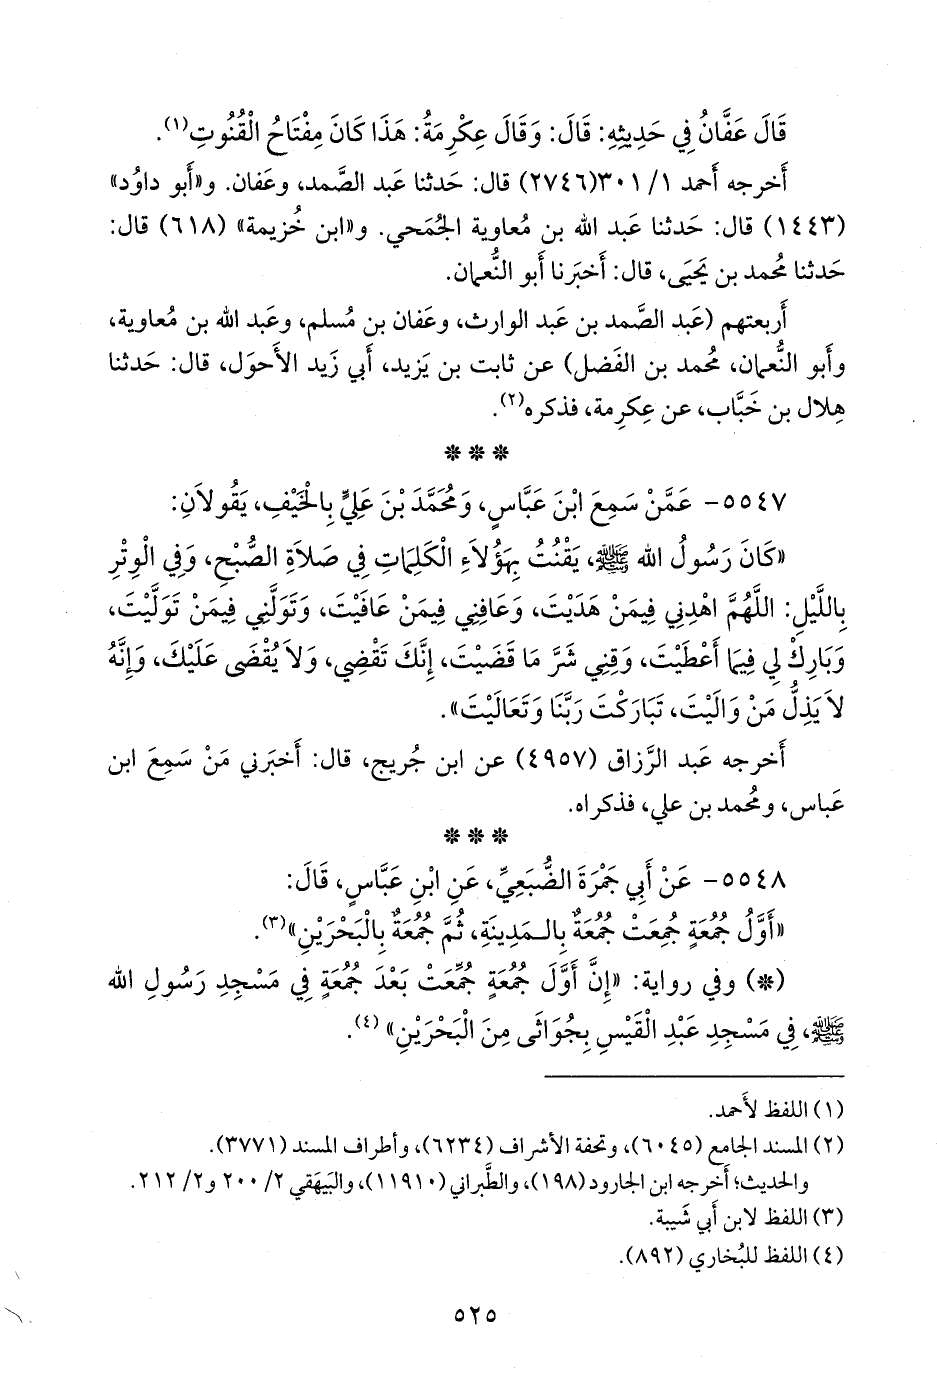 قَالَ عَفَّانُ فِي حَدِيثِهِ: قَالَ: وَقَالَ عِكْرِمَةُ: هَذَا كَانَ مِفْتَاحُ الْقُنُوتِ(١).
أَخرجه أَحمد ١/ ٣٠١(٢٧٤٦) قال: حَدثنا عَبد الصَّمد، وعَفان. و«أَبو داوُد»
(١٤٤٣) قال: حَدثنا عَبد الله بن مُعاوية الجُمَحي. و«ابن خُزيمة» (٦١٨) قال:
حَدثنا مُحمد بن يَحيَى، قال: أَخبَرنا أَبو النُّعمان.
أَربعتهم (عَبد الصَّمد بن عَبد الوارث، وعَفان بن مُسلم، وعَبد الله بن مُعاوية،
وأَبو النُّعمان، مُحمد بن الفَضل) عن ثابت بن يَزيد، أَبي زَيد الأَحوَل، قال: حَدثنا
هِلال بن خَبَّاب، عن عِكرِمة، فذكره(٢).
* * *
٥٥٤٧- عَمَّنْ سَمِعَ ابْنَ عَبَّاسٍ، وَمُحَمَّدَ بْنَ عَلِيٍّ بِالْخَيْفِ، يَقُولاَنِ:
«كَانَ رَسُولُ الله ﷺ، يَقْنُتُ بِهَؤُلاَءِ الْكَلِمَاتِ فِي صَلاَةِ الصُّبْحِ، وَفِي الْوِتْرِ
بِاللَّيْلِ: اللَّهُمَّ اهْدِنِي فِيمَنْ هَدَيْتَ، وَعَافِنِي فِيمَنْ عَافَيْتَ، وَتَوَلَّنِي فِيمَنْ تَوَلَّيْتَ،
وَبَارِكْ لِي فِيمَا أَعْطَيْتَ، وَقِنِي شَرَّ مَا قَضَيْتَ، إِنَّكَ تَقْضِي، وَلاَ يُقْضَى عَلَيْكَ، وَإِنَّهُ
لاَ يَذِلُّ مَنْ وَالَيْتَ، تَبَارَكْتَ رَبَّنَا وَتَعَالَيْتَ».
أَخرجه عَبد الرَّزاق (٤٩٥٧) عن ابن جُريج، قال: أَخبَرني مَنْ سَمِعَ ابن
عَباس، ومُحمد بن علي، فذكراه.
* * *
٥٥٤٨- عَنْ أَبِي جَمْرَةَ الضُّبَعِيِّ، عَنِ ابْنِ عَبَّاسٍ، قَالَ:
«أَوَّلُ جُمُعَةٍ جُمِعَتْ جُمُعَةٌ بِالـمَدِينَةِ، ثُمَّ جُمُعَةٌ بِالْبَحْرَيْنِ»(٣).
(*) وفي رواية: «إِنَّ أَوَّلَ جُمُعَةٍ جُمِّعَتْ بَعْدَ جُمُعَةٍ فِي مَسْجِدِ رَسُولِ الله
ﷺ، فِي مَسْجِدِ عَبْدِ الْقَيْسِ بِجُوَاثَى مِنَ الْبَحْرَيْنِ» (٤).
(١) اللفظ لأَحمد.
(٢) المسند الجامع (٦٠٤٥)، وتحفة الأشراف (٦٢٣٤)، وأطراف المسند (٣٧٧١).
والحديث؛ أَخرجه ابن الجارود (١٩٨)، والطَّبراني (١١٩١٠)، والبَيهَقي ٢/ ٢٠٠ و٢/ ٢١٢.
(٣) اللفظ لابن أَبي شَيبة.
(٤) اللفظ للبُخاري (٨٩٢).
٥٢٥